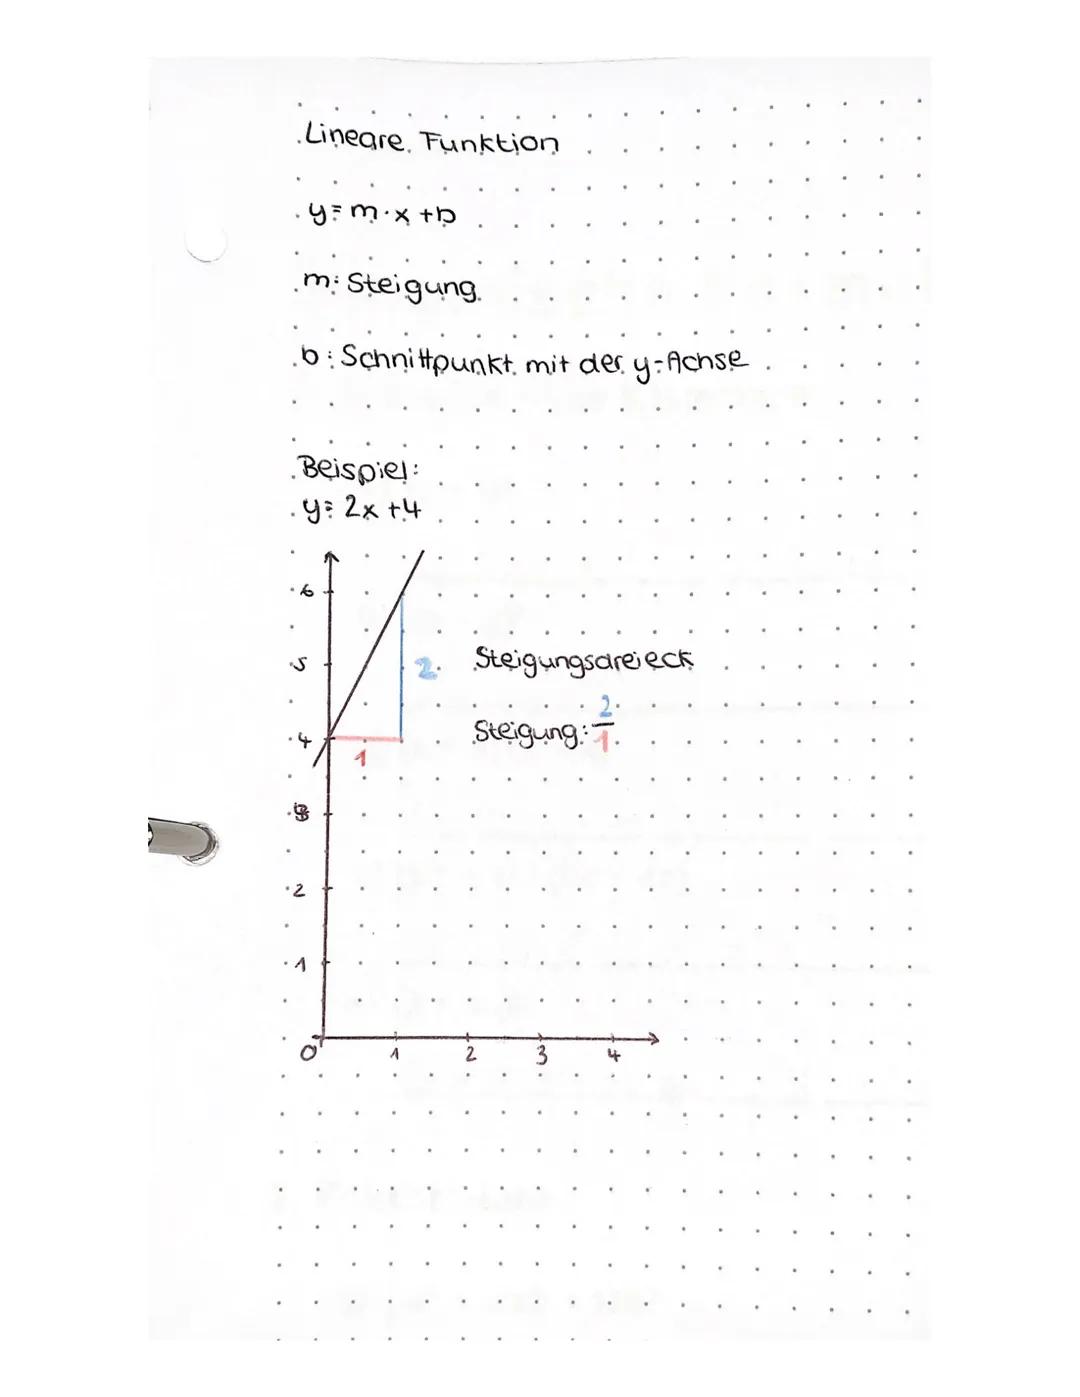 Lineare Funktion
y = m · x + b
m: Steigung
b: Schnittpunkt mit der y-Achse
Beispiel:
y = 2x + 4
6
5
2
Steigungsdreieck
Steigung: 2/1
4
1
3
2
1
0 1 2 3 4